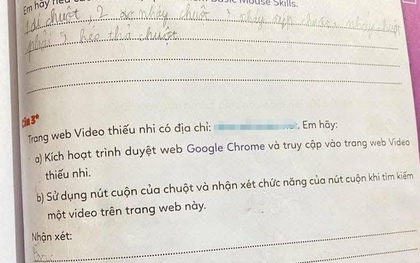 Em hãy nêu các Basic Mouse Skills.
chuột, 2 nháy chuột nháy chuột, nháy chuột
phải 5 kéo thả chuột
Câu 3*
Trang web Video thiếu nhi có địa chỉ: . Em hãy:
a) Kích hoạt trình duyệt web Google Chrome và truy cập vào trang web Video
thiếu nhi.
b) Sử dụng nút cuộn của chuột và nhận xét chức năng của nút cuộn khi tìm kiếm
một video trên trang web này.
Nhận xét: